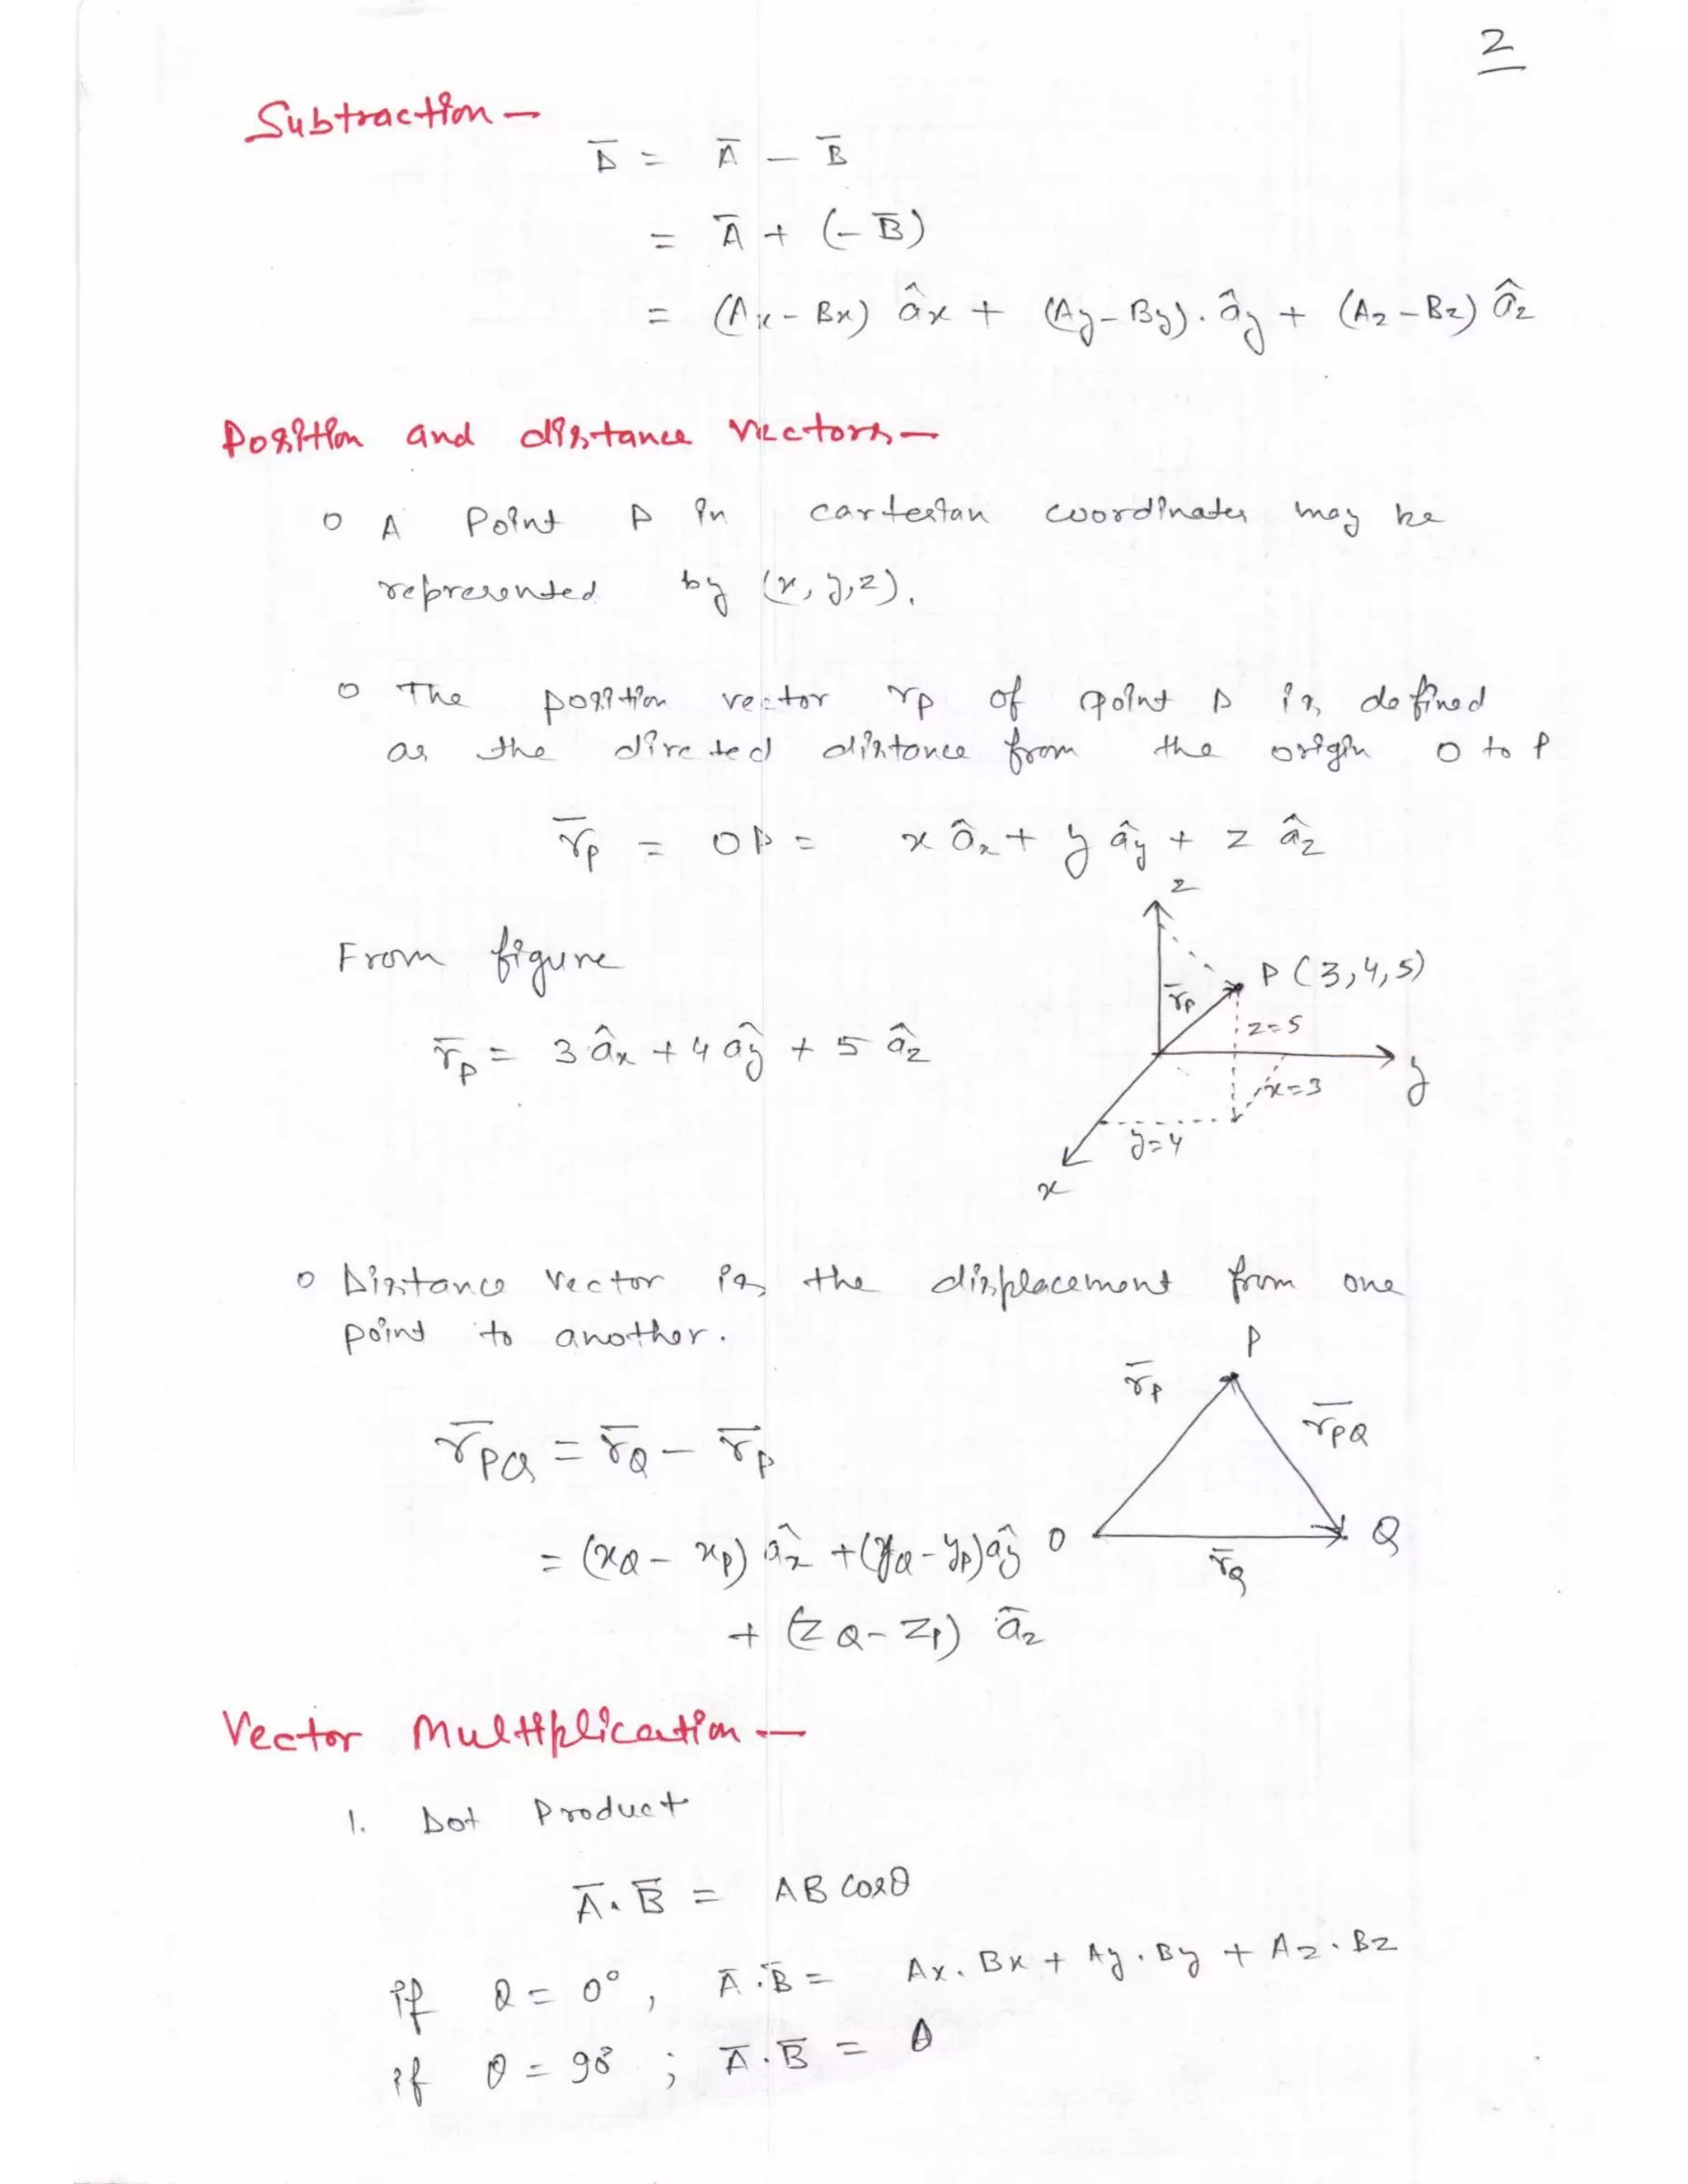 2
Subtraction —
D̅ = A̅ — B̅
= A̅ + (- B̅)
= (Ax - Bx) âx + (Ay - By) . ây + (Az - Bz) âz
Position and distance vectors —
o A Point P in cartesian coordinates may be
represented by (x, y, z).
o The position vector rp of point P is defined
as the directed distance from the origin O to P
r̅p = OP = x âx + y ây + z âz
z
From figure
P (3,4,5)
r̅p
z=5
r̅p = 3 âx + 4 ây + 5 âz
y
x=3
y=4
x
o Distance vector is the displacement from one
point to another.
P
r̅p
r̅PQ
r̅PQ = r̅Q — r̅p
O
Q
= (xQ - xp) âx + (yQ - yp) ây
r̅Q
+ (zQ - zp) a̅z
Vector Multiplication —
1. Dot Product
A̅ . B̅ = AB cosθ
if θ = 0°, A̅ . B̅ = Ax . Bx + Ay . By + Az . Bz
if θ = 90° ; A̅ . B̅ = 0